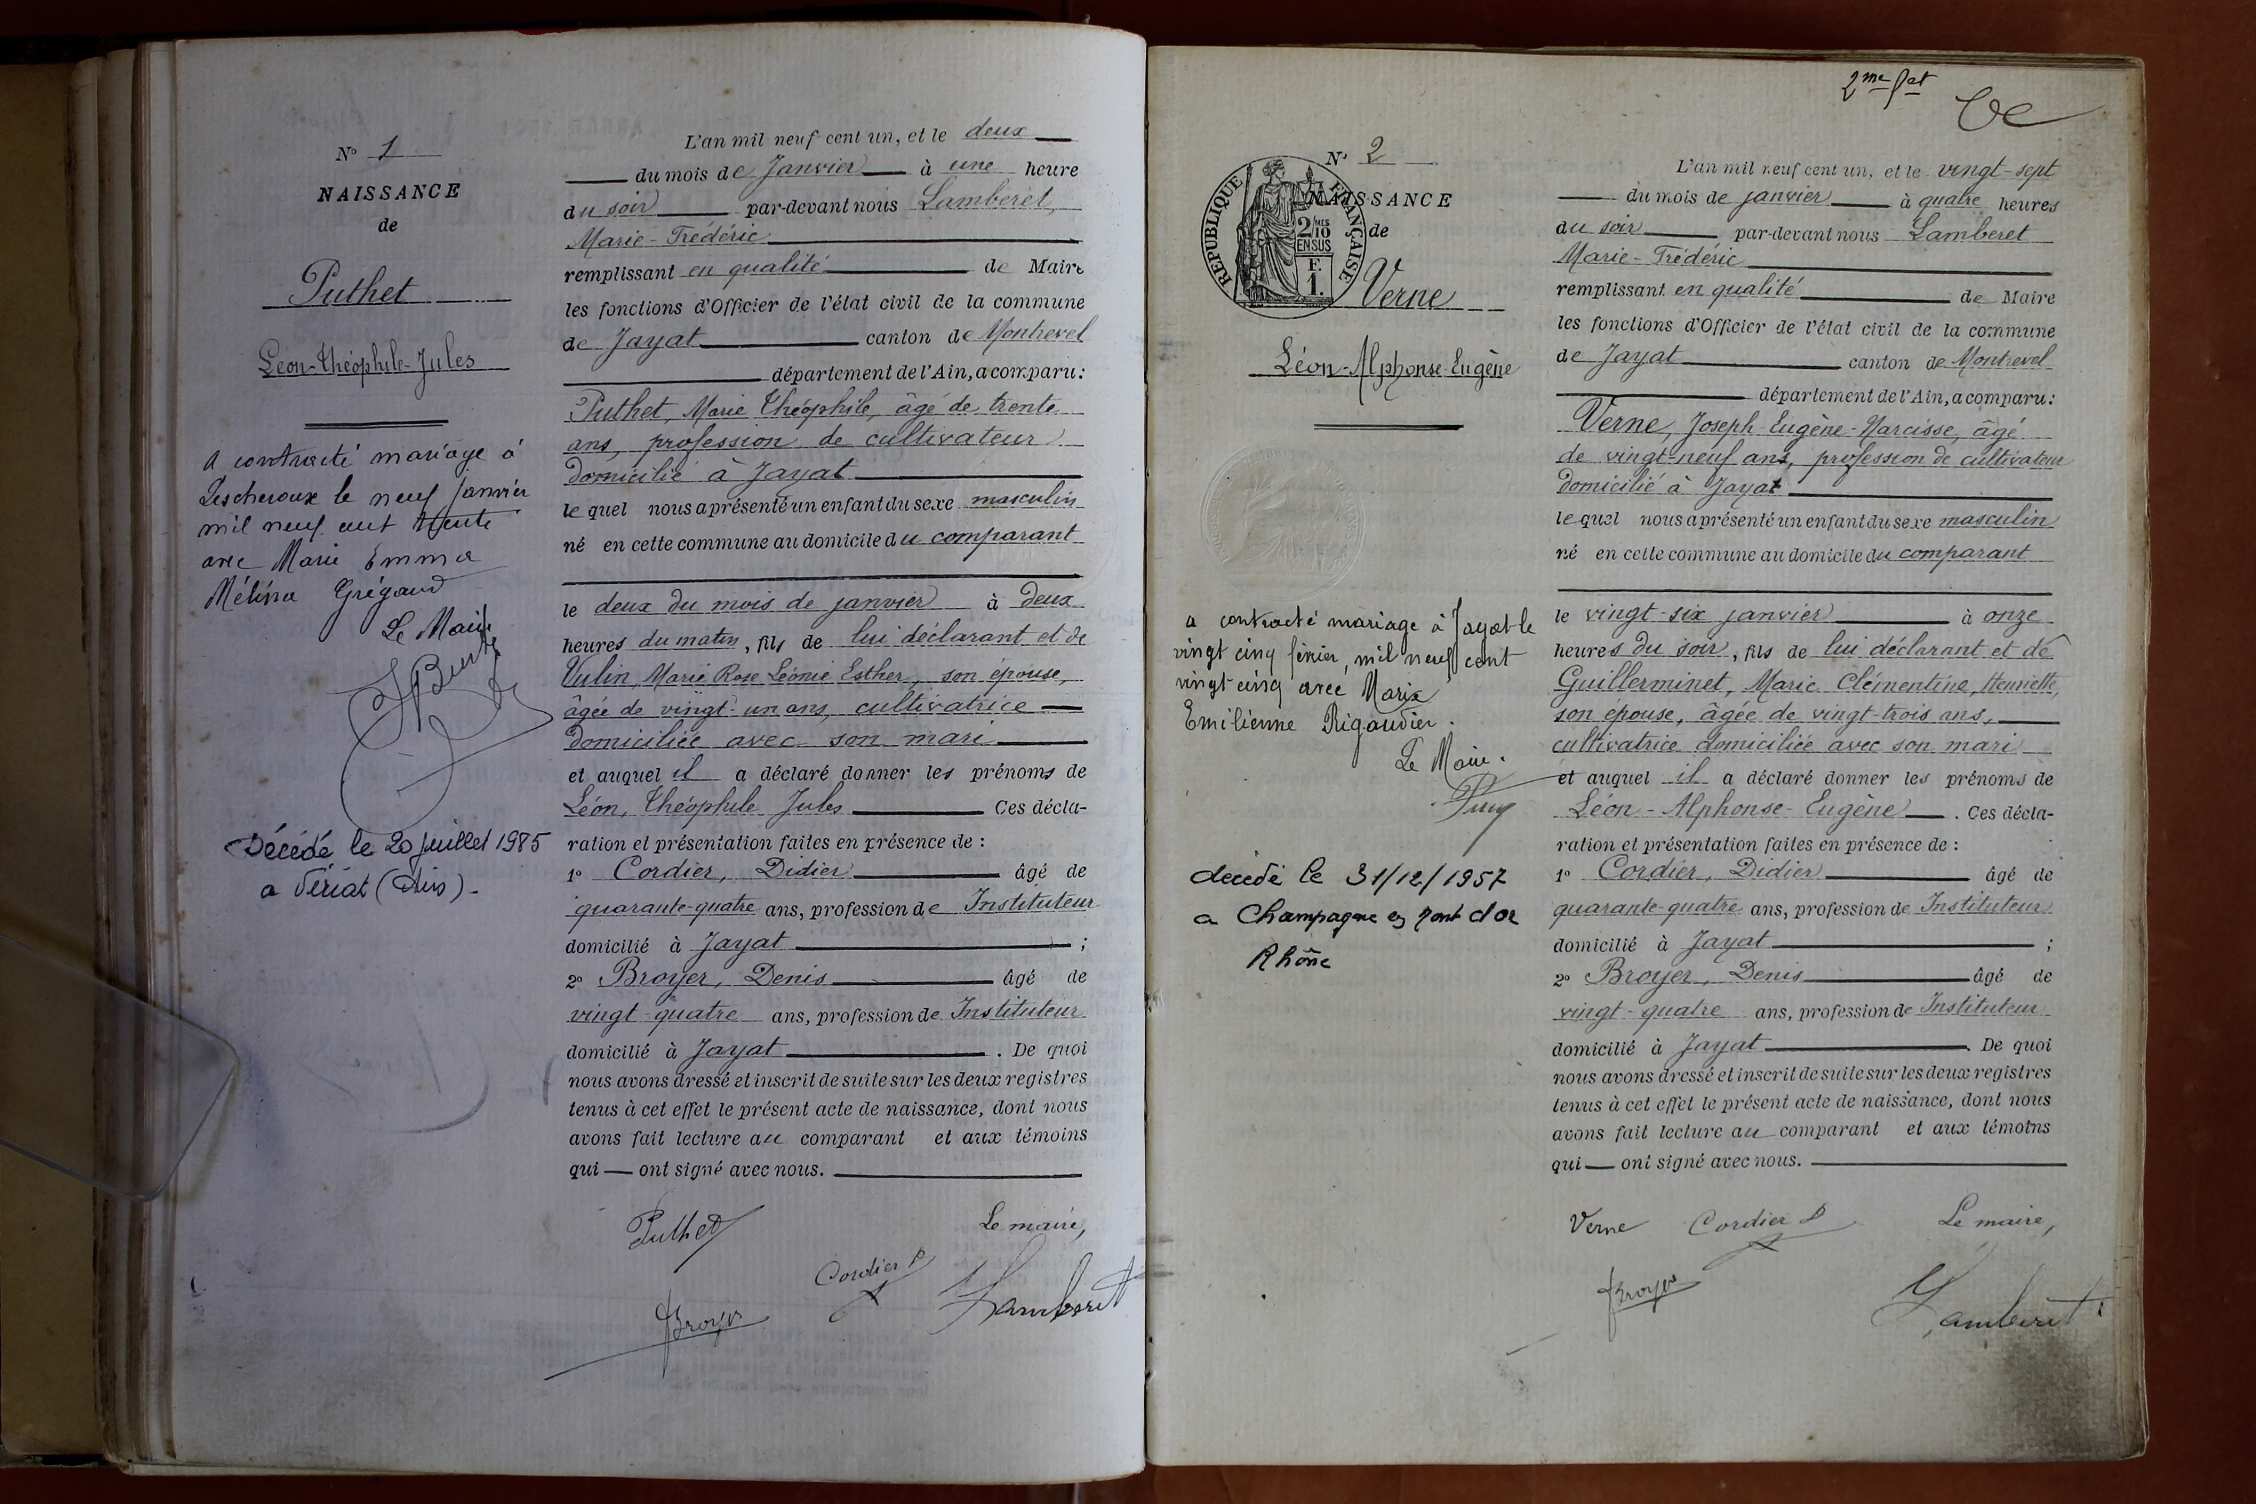 N° 1
NAISSANCE
de
Puthet
Léon-Théophile-Jules
A contracté mariage à
Lescheroux le neuf janvier
mil neuf cent trente
avec Marie Emma
Mélina Grégaud
Le Maire
Décédé le 20 juillet 1985
a Viriat (Ain).
L'an mil neuf cent un, et le deux
du mois de Janvier à une heure
du soir par-devant nous Lamberet,
Marie-Frédéric
remplissant en qualité de Maire
les fonctions d'Officier de l'état civil de la commune
de Jayat canton de Montrevel
département de l'Ain, a comparu:
Puthet, Marie Théophile, âgé de trente
ans, profession de cultivateur
domicilié à Jayat
lequel nous a présenté un enfant du sexe masculin
né en cette commune au domicile du comparant
le deux du mois de janvier à deux
heures du matin, fils de lui déclarant et de
Vulin, Marie Rose Léonie Esther, son épouse,
âgée de vingt-un ans, cultivatrice
domiciliée avec son mari
et auquel il a déclaré donner les prénoms de
Léon, Théophile Jules Ces décla-
ration et présentation faites en présence de :
1° Cordier, Didier âgé de
quarante-quatre ans, profession de Instituteur
domicilié à Jayat ;
2° Broyer, Denis âgé de
vingt-quatre ans, profession de Instituteur
domicilié à Jayat . De quoi
nous avons dressé et inscrit de suite sur les deux registres
tenus à cet effet le présent acte de naissance, dont nous
avons fait lecture au comparant et aux témoins
qui ont signé avec nous.
Puthet
Le maire,
Cordier D
Broyer
Lamberet
2me Pet
N° 2
NAISSANCE
de
REPUBLIQUE FRANÇAISE
2/10 MES
EN SUS
F.
1.
Verne
Léon-Alphonse-Eugène
a contracté mariage à Jayat le
vingt cinq février, mil neuf cent
vingt-cinq avec Maria
Emilienne Rigaudier.
Le Maire.
décédé le 31/12/1957
a Champagne en mont d'or
Rhône
L'an mil neuf cent un, et le vingt-sept
du mois de janvier à quatre heures
du soir par-devant nous Lamberet
Marie-Frédéric
remplissant en qualité de Maire
les fonctions d'Officier de l'état civil de la commune
de Jayat canton de Montrevel
département de l'Ain, a comparu:
Verne, Joseph-Eugène-Narcisse, âgé
de vingt-neuf ans, profession de cultivateur
domicilié à Jayat
lequel nous a présenté un enfant du sexe masculin
né en cette commune au domicile du comparant
le vingt-six janvier à onze
heures du soir, fils de lui déclarant et de
Guillerminet, Marie Clémentine, Henriette,
son épouse, âgée de vingt-trois ans,
cultivatrice domiciliée avec son mari
et auquel il a déclaré donner les prénoms de
Léon-Alphonse-Eugène . Ces décla-
ration et présentation faites en présence de :
1° Cordier, Didier âgé de
quarante-quatre ans, profession de Instituteur
domicilié à Jayat ;
2° Broyer, Denis âgé de
vingt-quatre ans, profession de Instituteur
domicilié à Jayat . De quoi
nous avons dressé et inscrit de suite sur les deux registres
tenus à cet effet le présent acte de naissance, dont nous
avons fait lecture au comparant et aux témoins
qui ont signé avec nous.
Verne Cordier D Le maire,
Broyer
Lamberet